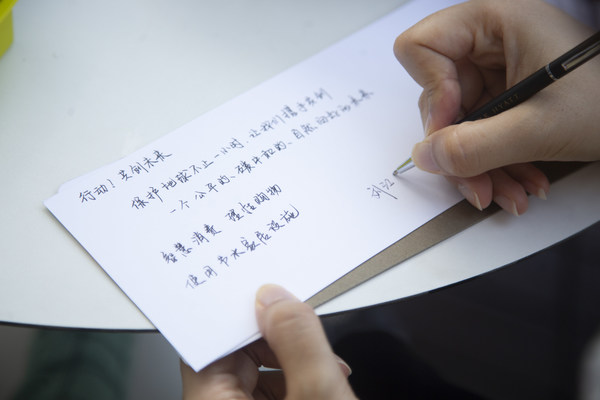 行动！共创未来
保护地球不止一小时，让我们携手共创
一个公平的、碳中和的、自然向好的未来
智慧消费 理性购物
使用节水家居设施